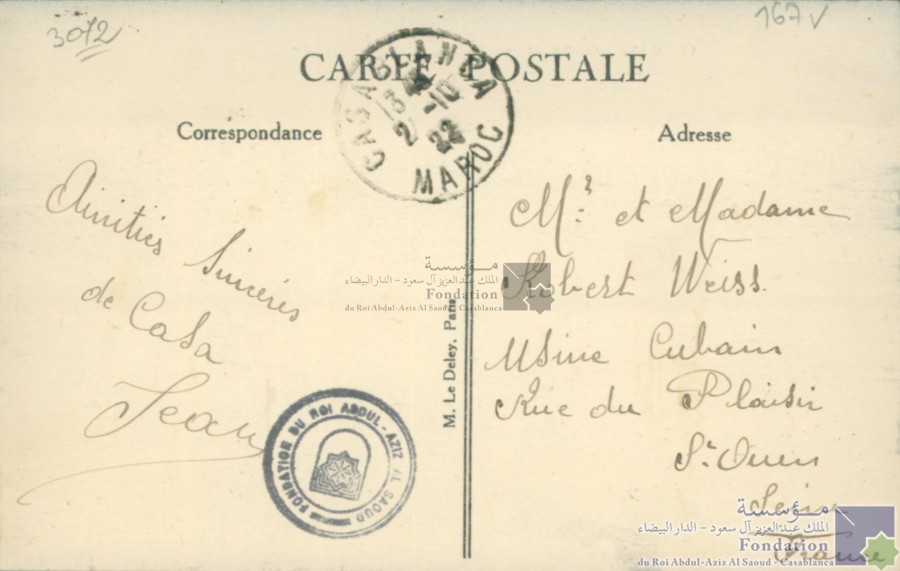 3072
167 V
CARTE POSTALE
CASABLANCA
2 -10
22
MAROC
Correspondance
Adresse
Amitiés Sincères
de Casa
Jean
Mr et Madame
Robert Weiss.
Usine Cubain
Rue du Plaisir
St Ouen
Seine
France
M. Le Deley, Paris
FONDATION DU ROI ABDUL-AZIZ AL SAOUD
مؤسسة
الملك عبدالعزيز آل سعود - الدار البيضاء
Fondation
du Roi Abdul-Aziz Al Saoud - Casablanca
مؤسسة
الملك عبدالعزيز آل سعود - الدار البيضاء
Fondation
du Roi Abdul-Aziz Al Saoud - Casablanca